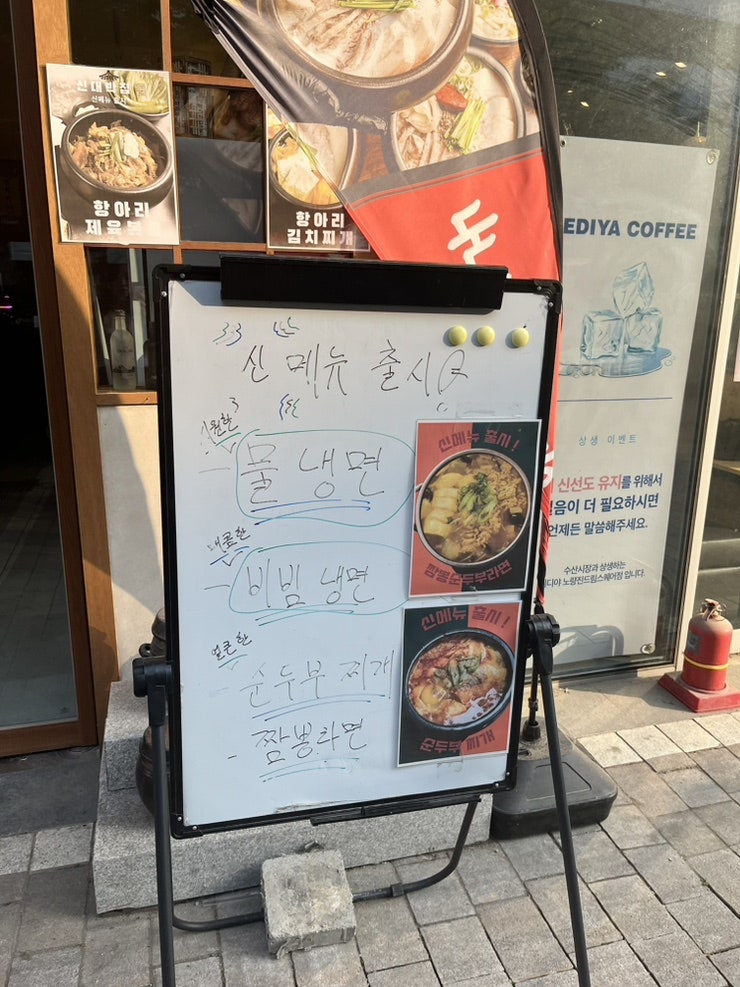 신대박집
신메뉴 출시
항아리
제육볶
항아리
김치찌개
돈
EDIYA COFFEE
상생 이벤트
신선도 유지를 위해서
얼음이 더 필요하시면
언제든 말씀해주세요.
수산시장과 상생하는
이디야 노량진드림스퀘어점 입니다.
신 메뉴 출시
시원한
물 냉면
매콤한
- 비빔 냉면
얼큰한
- 순두부 찌개
- 짬뽕라면
신메뉴 출시!
짬뽕순두부라면
신메뉴 출시!
순두부 찌개